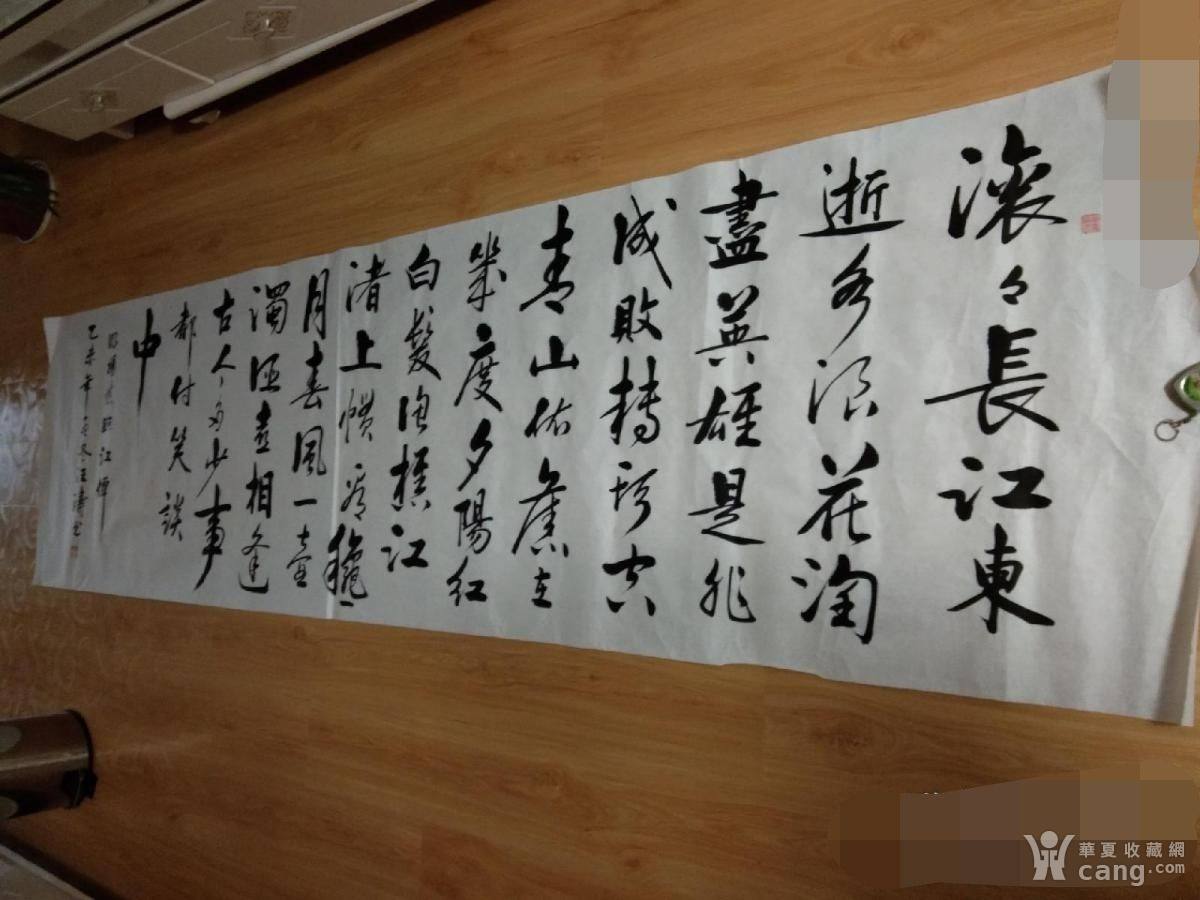 滚々長江東
逝水浪花淘
盡英雄是非
成敗轉頭空
青山依舊在
幾度夕陽紅
白髮漁樵江
渚上慣看穐
月春風一壺
濁酒喜相逢
古今多少事
都付笑談
中
楊慎臨江僊
乙未年冬王濤書
華夏收藏網
cang.com